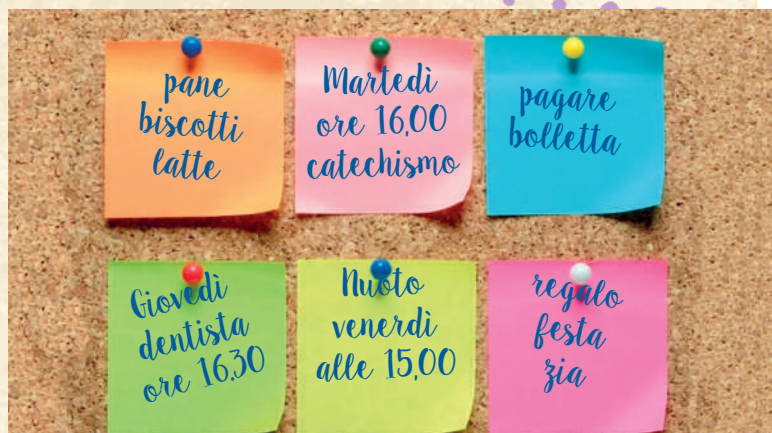 pane
biscotti
latte
Martedì
ore 16,00
catechismo
pagare
bolletta
Giovedì
dentista
ore 16.30
Nuoto
venerdì
alle 15,00
regalo
festa
zia